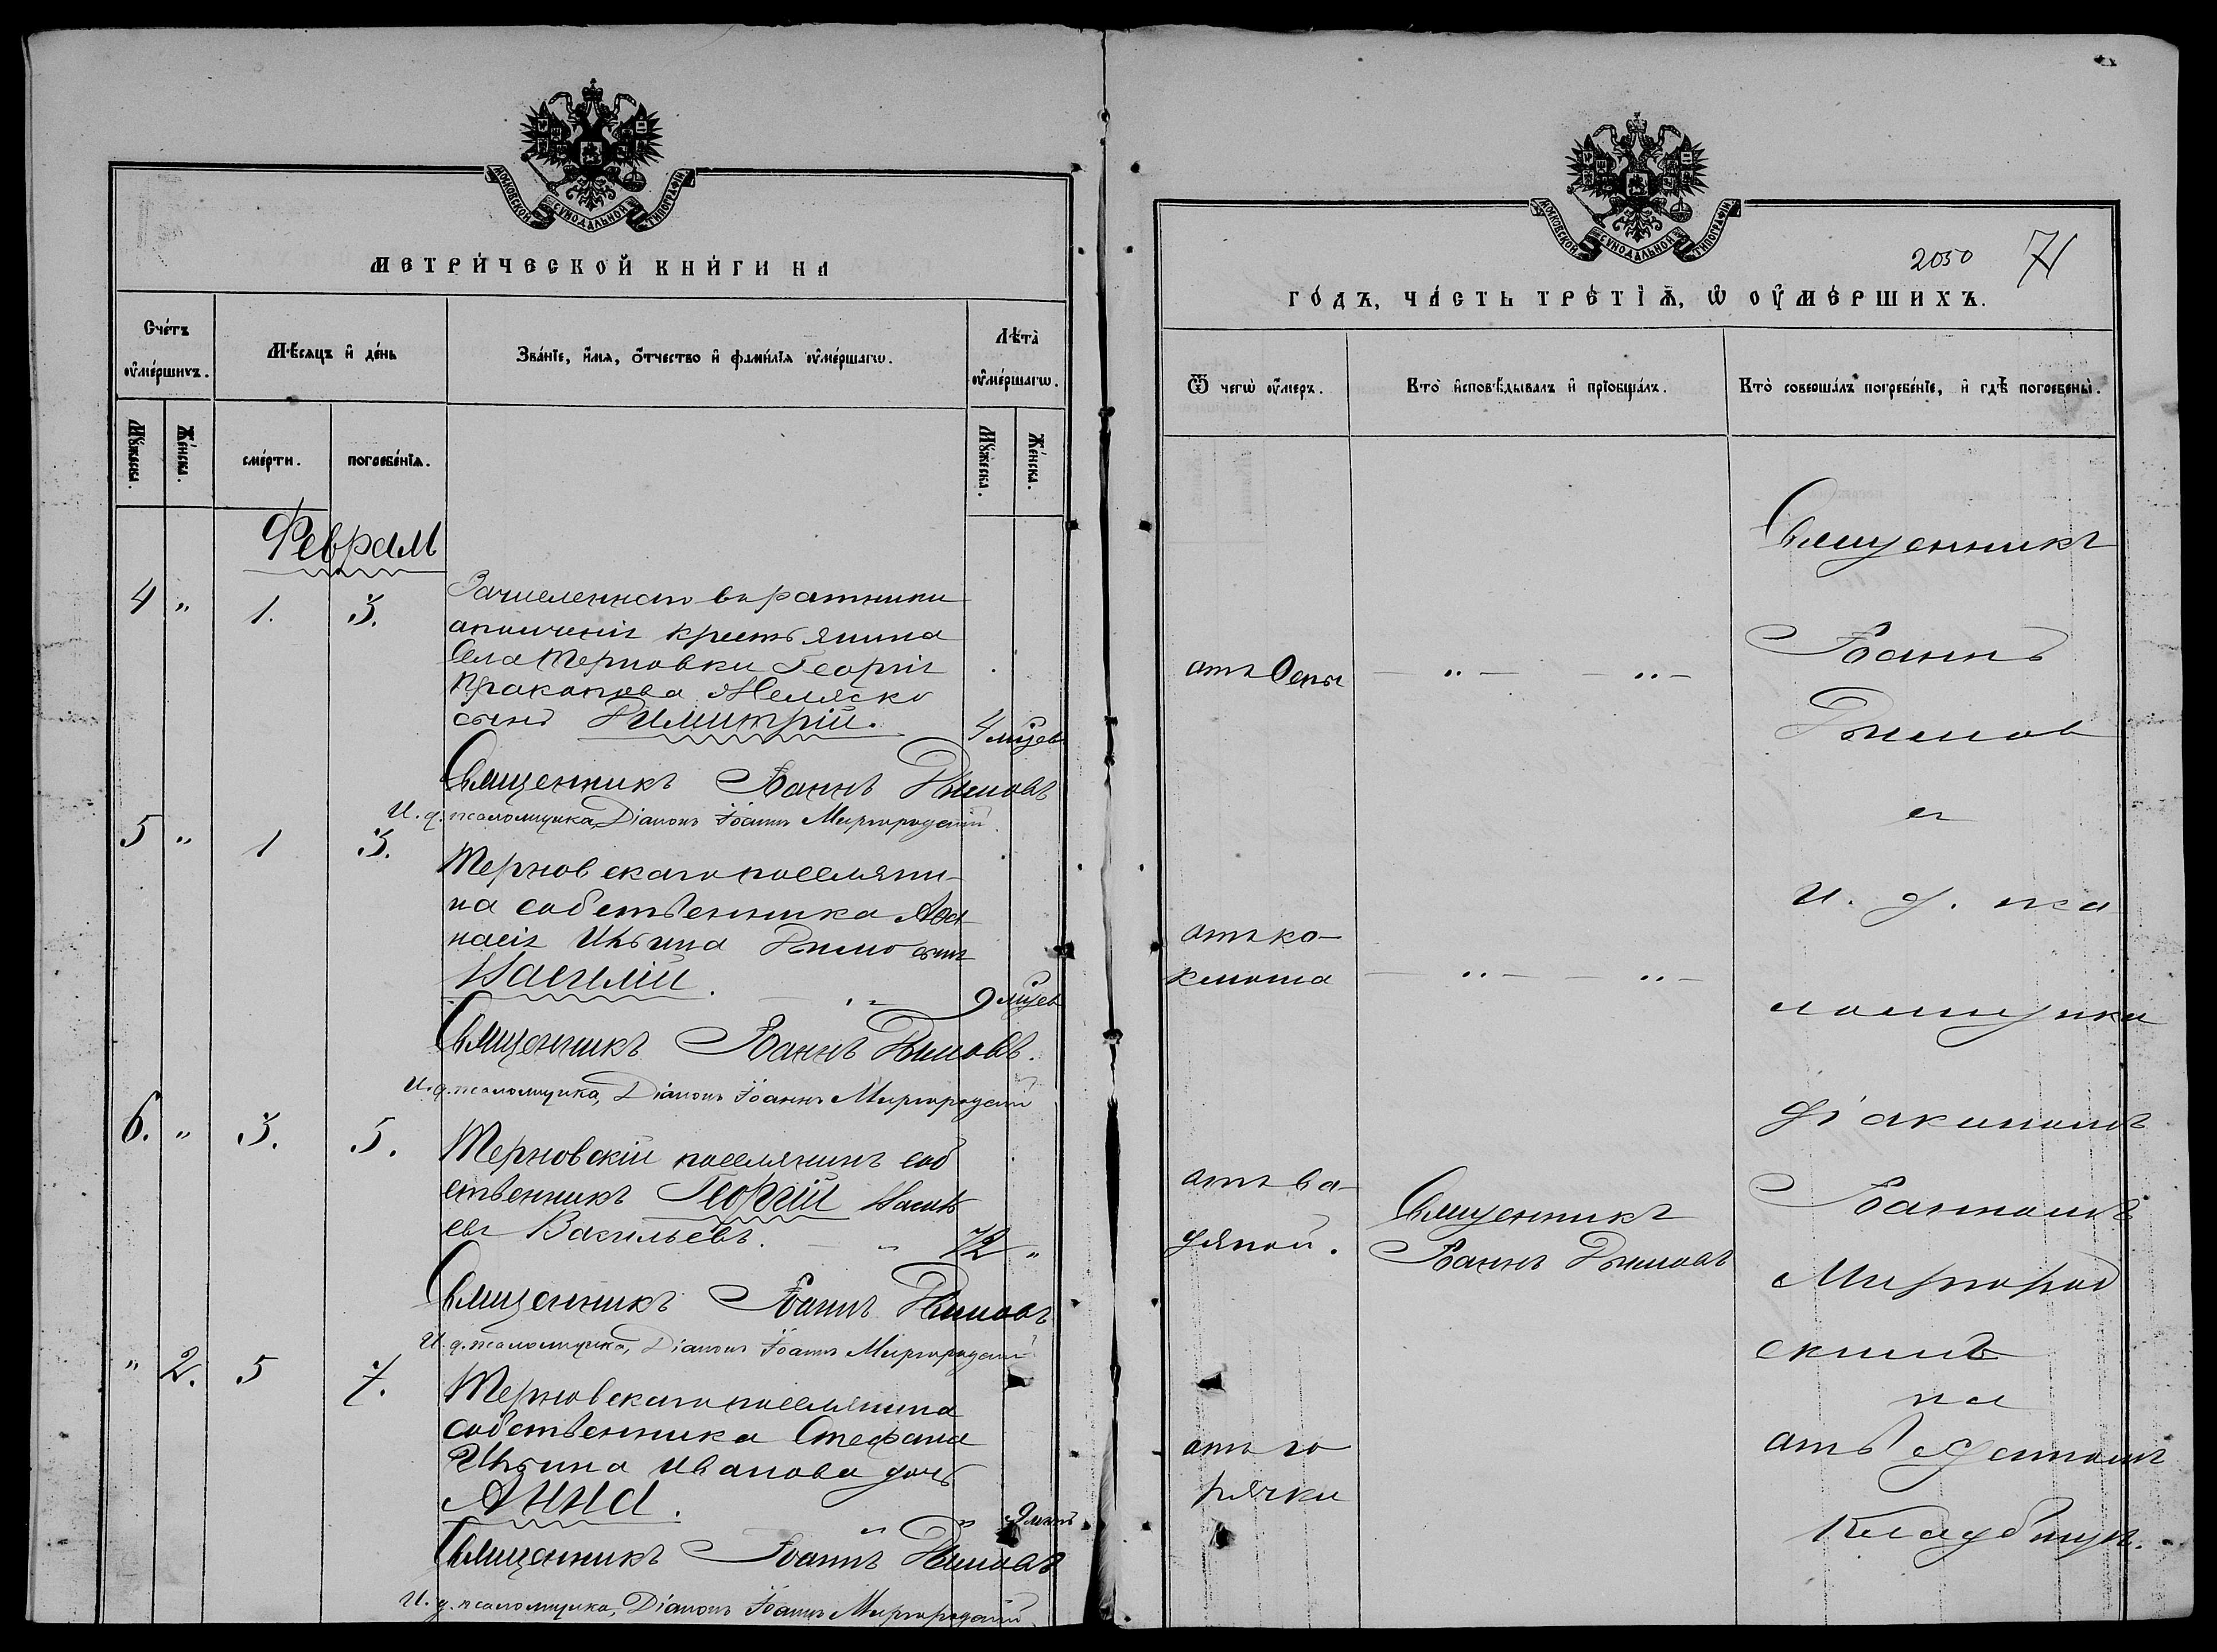 МОСКОВСКОЙ СУНОДАЛЬНОЙ ТИПОГРАФІИ
МЕТРИ́ЧЕСКОЙ КНИ́ГИ НА
Сче́тъ ᲂу҆ме́ршихъ.
Мѣ́сяцъ и҆ де́нь
Зва́нїе, и҆́мя, ѻ҆́тчество и҆ фами́лїя ᲂу҆ме́ршагѡ.
Лѣ́та ᲂу҆ме́ршагѡ.
Мꙋ́жеска.
Же́нска.
сме́рти.
погребе́нїя.
Мꙋ́жеска.
Же́нска.
Февраль
4 " 1. 3.
Зачисленнаго въ ратники
ополченія крестьянина
Села Терновки Георгія
Пракопова Желяско
сынъ Димитрій.
4 мѣсе
Священникъ Іоаннъ Димовъ
И. д. псаломщика, Діаконъ Іоаннъ Миргородскій
5 " 1 3.
Терновскаго поселяни-
на собственника Аѳа
насія Ильина Димо сынъ
Василій.
9 мѣсе
Священникъ Іоаннъ Димовъ.
И. д. псаломщика, Діаконъ Іоаннъ Миргородскій
6. " 3. 5.
Терновскій поселянинъ соб
ственникъ Георгій Василь
евъ Васильевъ. 72 "
Священникъ Іоаннъ Димовъ
И. д. псаломщика, Діаконъ Іоаннъ Миргородскій
" 2. 5 7.
Терновскаго поселянина
собственника Стефана
Ильина Иванова дочь
Анна.
Священникъ Іоаннъ Димовъ
И. д. псаломщика, Діаконъ Іоаннъ Миргородскій
МОСКОВСКОЙ СУНОДАЛЬНОЙ ТИПОГРАФІИ
2050 71
ГО́ДЪ, ЧА́СТЬ ТРЕ́ТЇѦ, Ѡ҆ ОУ҆МЕ́РШИХЪ.
Ѿ чегѡ̀ ᲂу҆́меръ.
Кто̀ и҆сповѣ́дывалъ и҆ прїобща́лъ.
Кто̀ соверша́лъ погребе́нїе, и҆ гдѣ̀ погребены̀.
отъ Оспы
— " — — " —
отъ ко-
клюша
— " — — " —
отъ во-
дяной.
Священникъ
Іоаннъ Димовъ
отъ го
рячки
Священникъ
Іоаннъ
Димов
съ
и. д. пса
ломщика
діакономъ
Іоанномъ
Миргород
скимъ
на
Кладбищѣ.